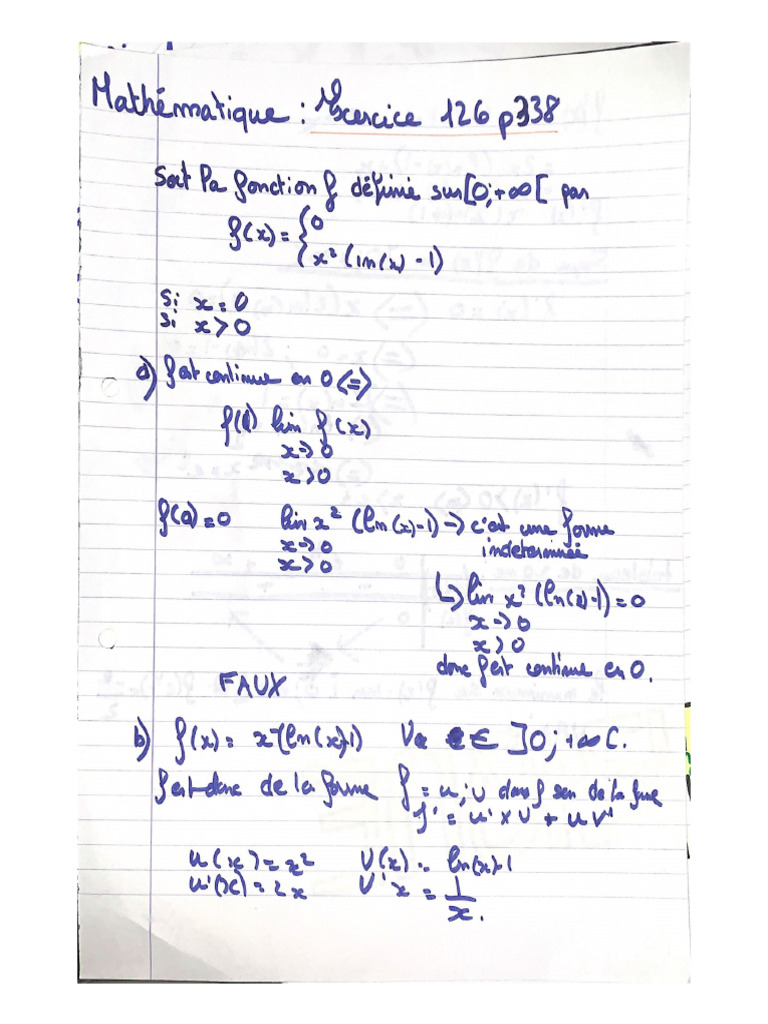 Mathématique : Exercice 126 p338
Soit la fonction f définie sur [0; +∞[ par
f(x) = { 0
{ x² (ln(x) - 1)
Si x = 0
Si x > 0
a) f est continue en 0 <=>
f(0) lim f(x)
x -> 0
x > 0
f(0) = 0 lim x² (ln(x)-1) -> c'est une forme
x -> 0 indeterminée
x > 0
↳ lim x² (ln(x)-1) = 0
x -> 0
x > 0
donc f est continue en 0.
FAUX
b) f(x) = x²(ln(x)-1) ∈ ]0; +∞ [.
f est donc de la forme f = u, v donc f sera de la forme
f' = u' x v + u v'
u(x) = x² V(x) = ln(x)-1
u'(x) = 2x V'x = 1/x.